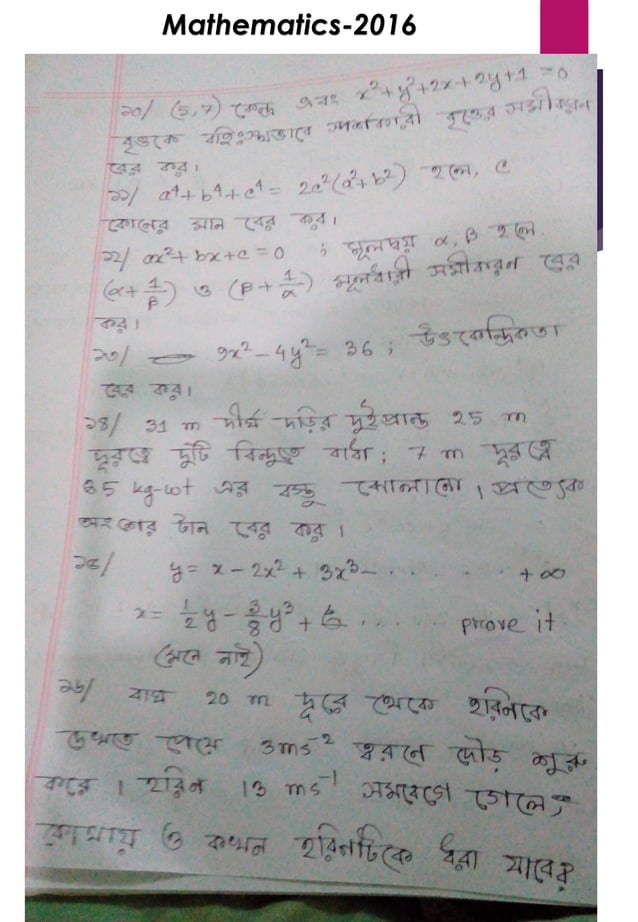 Mathematics-2016
২০/ (5,7) কেন্দ্র এবং x²+y²+2x+2y+1=0
বৃত্তকে বহিঃস্থভাবে স্পর্শকারী বৃত্তের সমীকরণ
বের কর।
২১/ a⁴+b⁴+c⁴ = 2c²(a²+b²) হলে, c
কোনের মান বের কর।
২২/ ax²+bx+c=0 ; মূলদ্বয় α, β হলে
(α+1/β) ও (β+1/α) মূলধারী সমীকরণ বের
কর।
২৩/ 9x²-4y²= 36 ; উৎকেন্দ্রিকতা
বের কর।
২৪/ 31 m দীর্ঘ দড়ির দুইপ্রান্ত 25 m
দূরত্বে দুটি বিন্দুতে বাধা ; 7 m দূরত্বে
65 kg-wt এর বস্তু ঝোলানো। প্রত্যেক
অংশের টান বের কর।
২৫/ y = x - 2x² + 3x³ - . . . . . . +∞
x = 1/2 y - 3/8 y³ + . . . . prove it
(মনে নাই)
২৬/ বাঘ 20 m দূরে থেকে হরিনকে
দেখতে পেয়ে 3ms⁻² ত্বরনে দৌড় শুরু
করে। হরিন 13 ms⁻¹ সমবেগে গেলে,
কোথায় ও কখন হরিনটিকে ধরা যাবে?